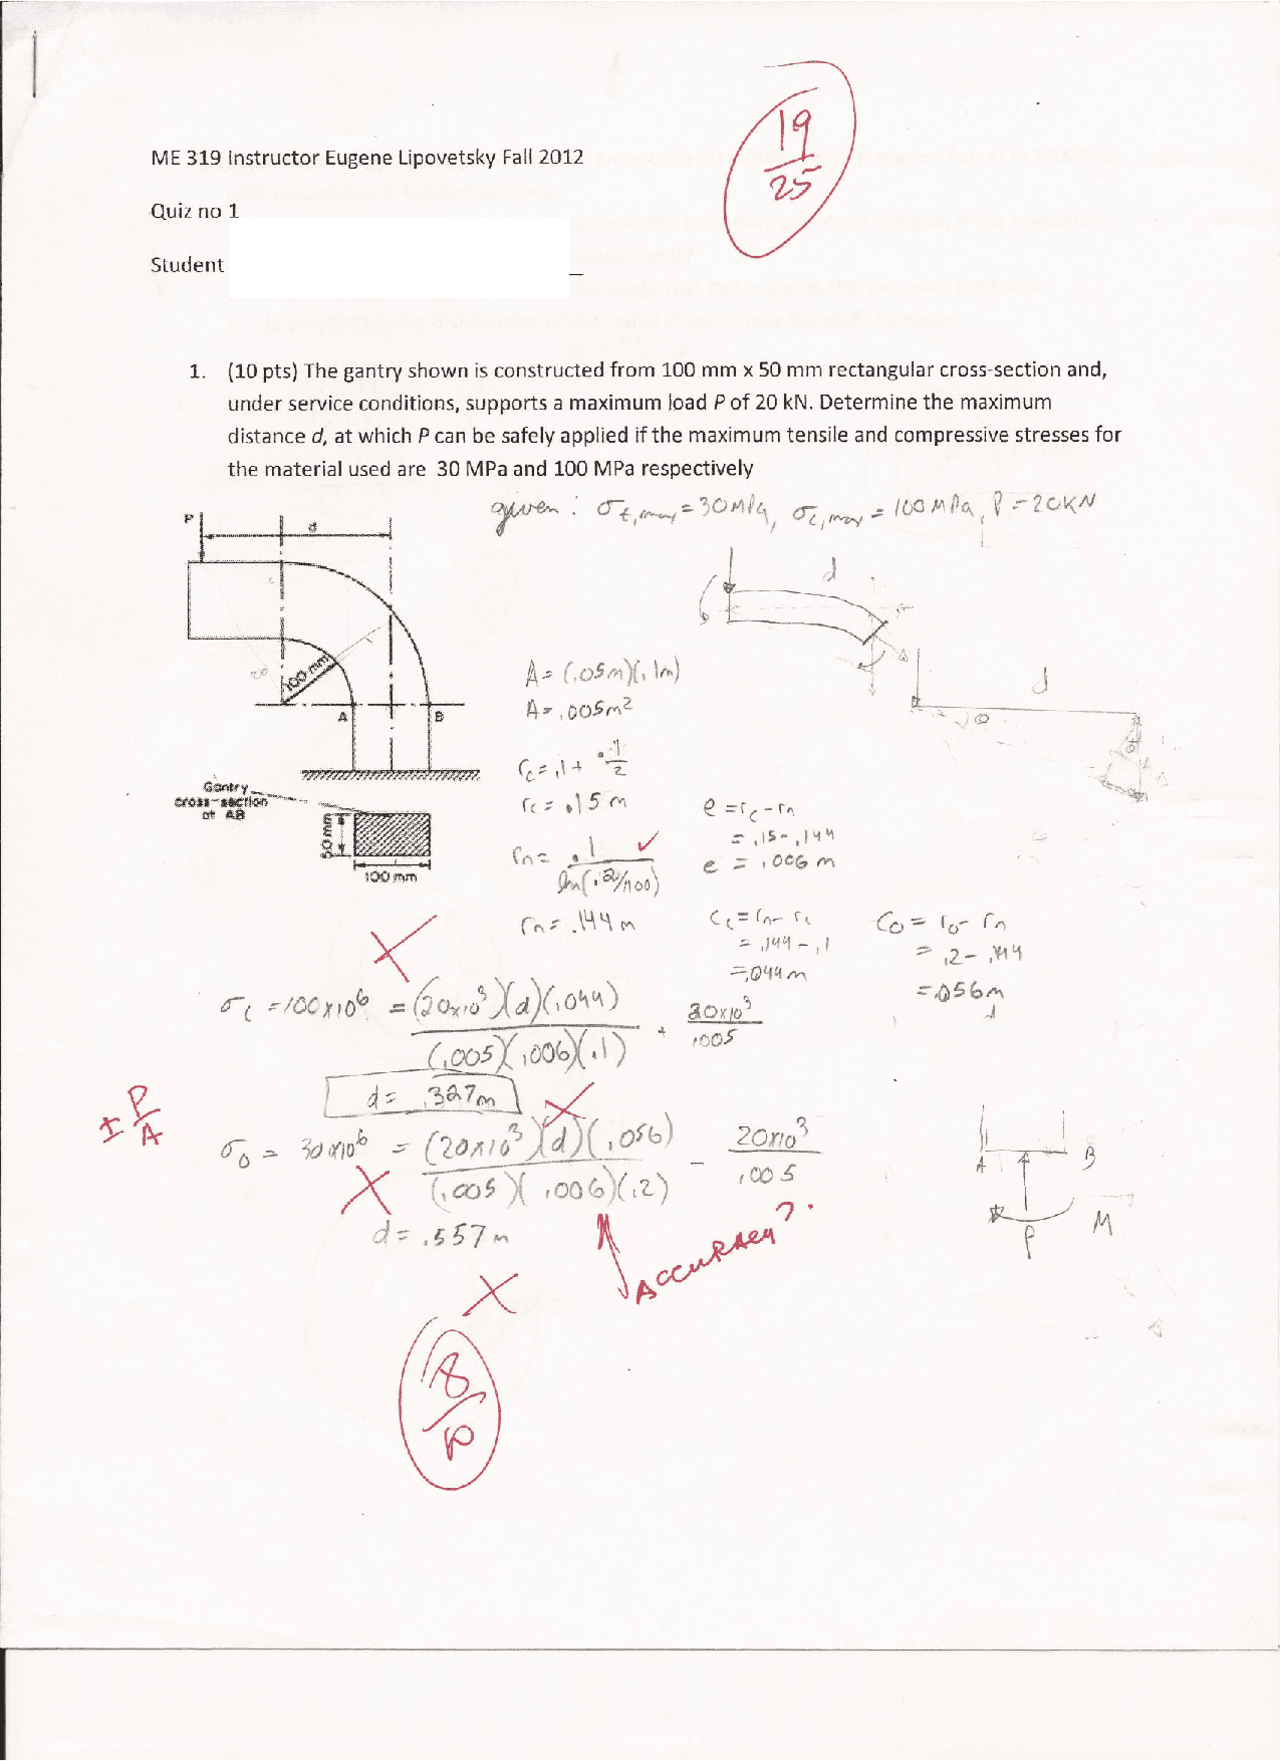 19
25
ME 319 Instructor Eugene Lipovetsky Fall 2012
Quiz no 1
Student
1. (10 pts) The gantry shown is constructed from 100 mm x 50 mm rectangular cross-section and,
under service conditions, supports a maximum load P of 20 kN. Determine the maximum
distance d, at which P can be safely applied if the maximum tensile and compressive stresses for
the material used are 30 MPa and 100 MPa respectively
given : σt,max = 30MPa, σc,max = 100 MPa, P = 20KN
P
d
100 mm
A
B
Gantry
cross-section
at AB
50 mm
100 mm
d
d
θ
A = (.05m)(.1m)
A = .005m²
rc = .1 + .1/2
rc = .15 m
rn = .1 / ln(.2/.100)
rn = .144 m
e = rc - rn
= .15 - .144
e = .006 m
ci = rn - ri
= .144 - .1
= .044m
co = ro - rn
= .2 - .144
= .056m
σi = 100x10⁶ = (20x10³)(d)(.044) / (.005)(.006)(.1) + 20x10³ / .005
d = .327m
± P/A
σo = 30x10⁶ = (20x10³)(d)(.056) / (.005)(.006)(.2) - 20x10³ / .005
d = .557m
ACCURACY?
A
B
P
M
8
10